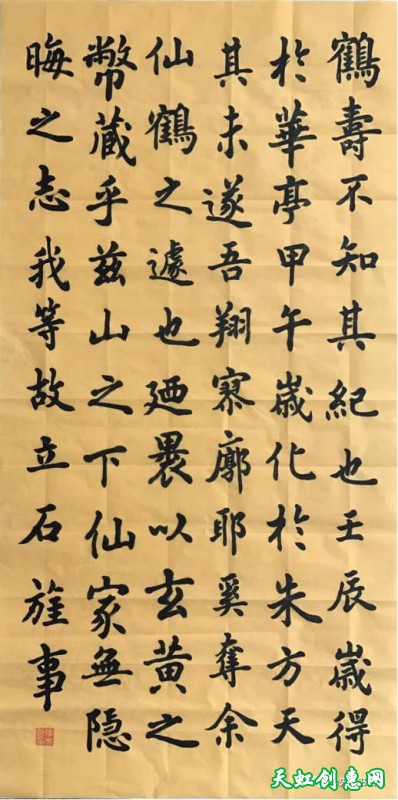 鶴壽不知其紀也壬辰歲得
於華亭甲午歲化於朱方天
其未遂吾翔寥廓耶奚奪余
仙鶴之遽也廼裹以玄黃之
幣藏乎茲山之下仙家無隐
晦之志我等故立石旌事
天虹创惠网